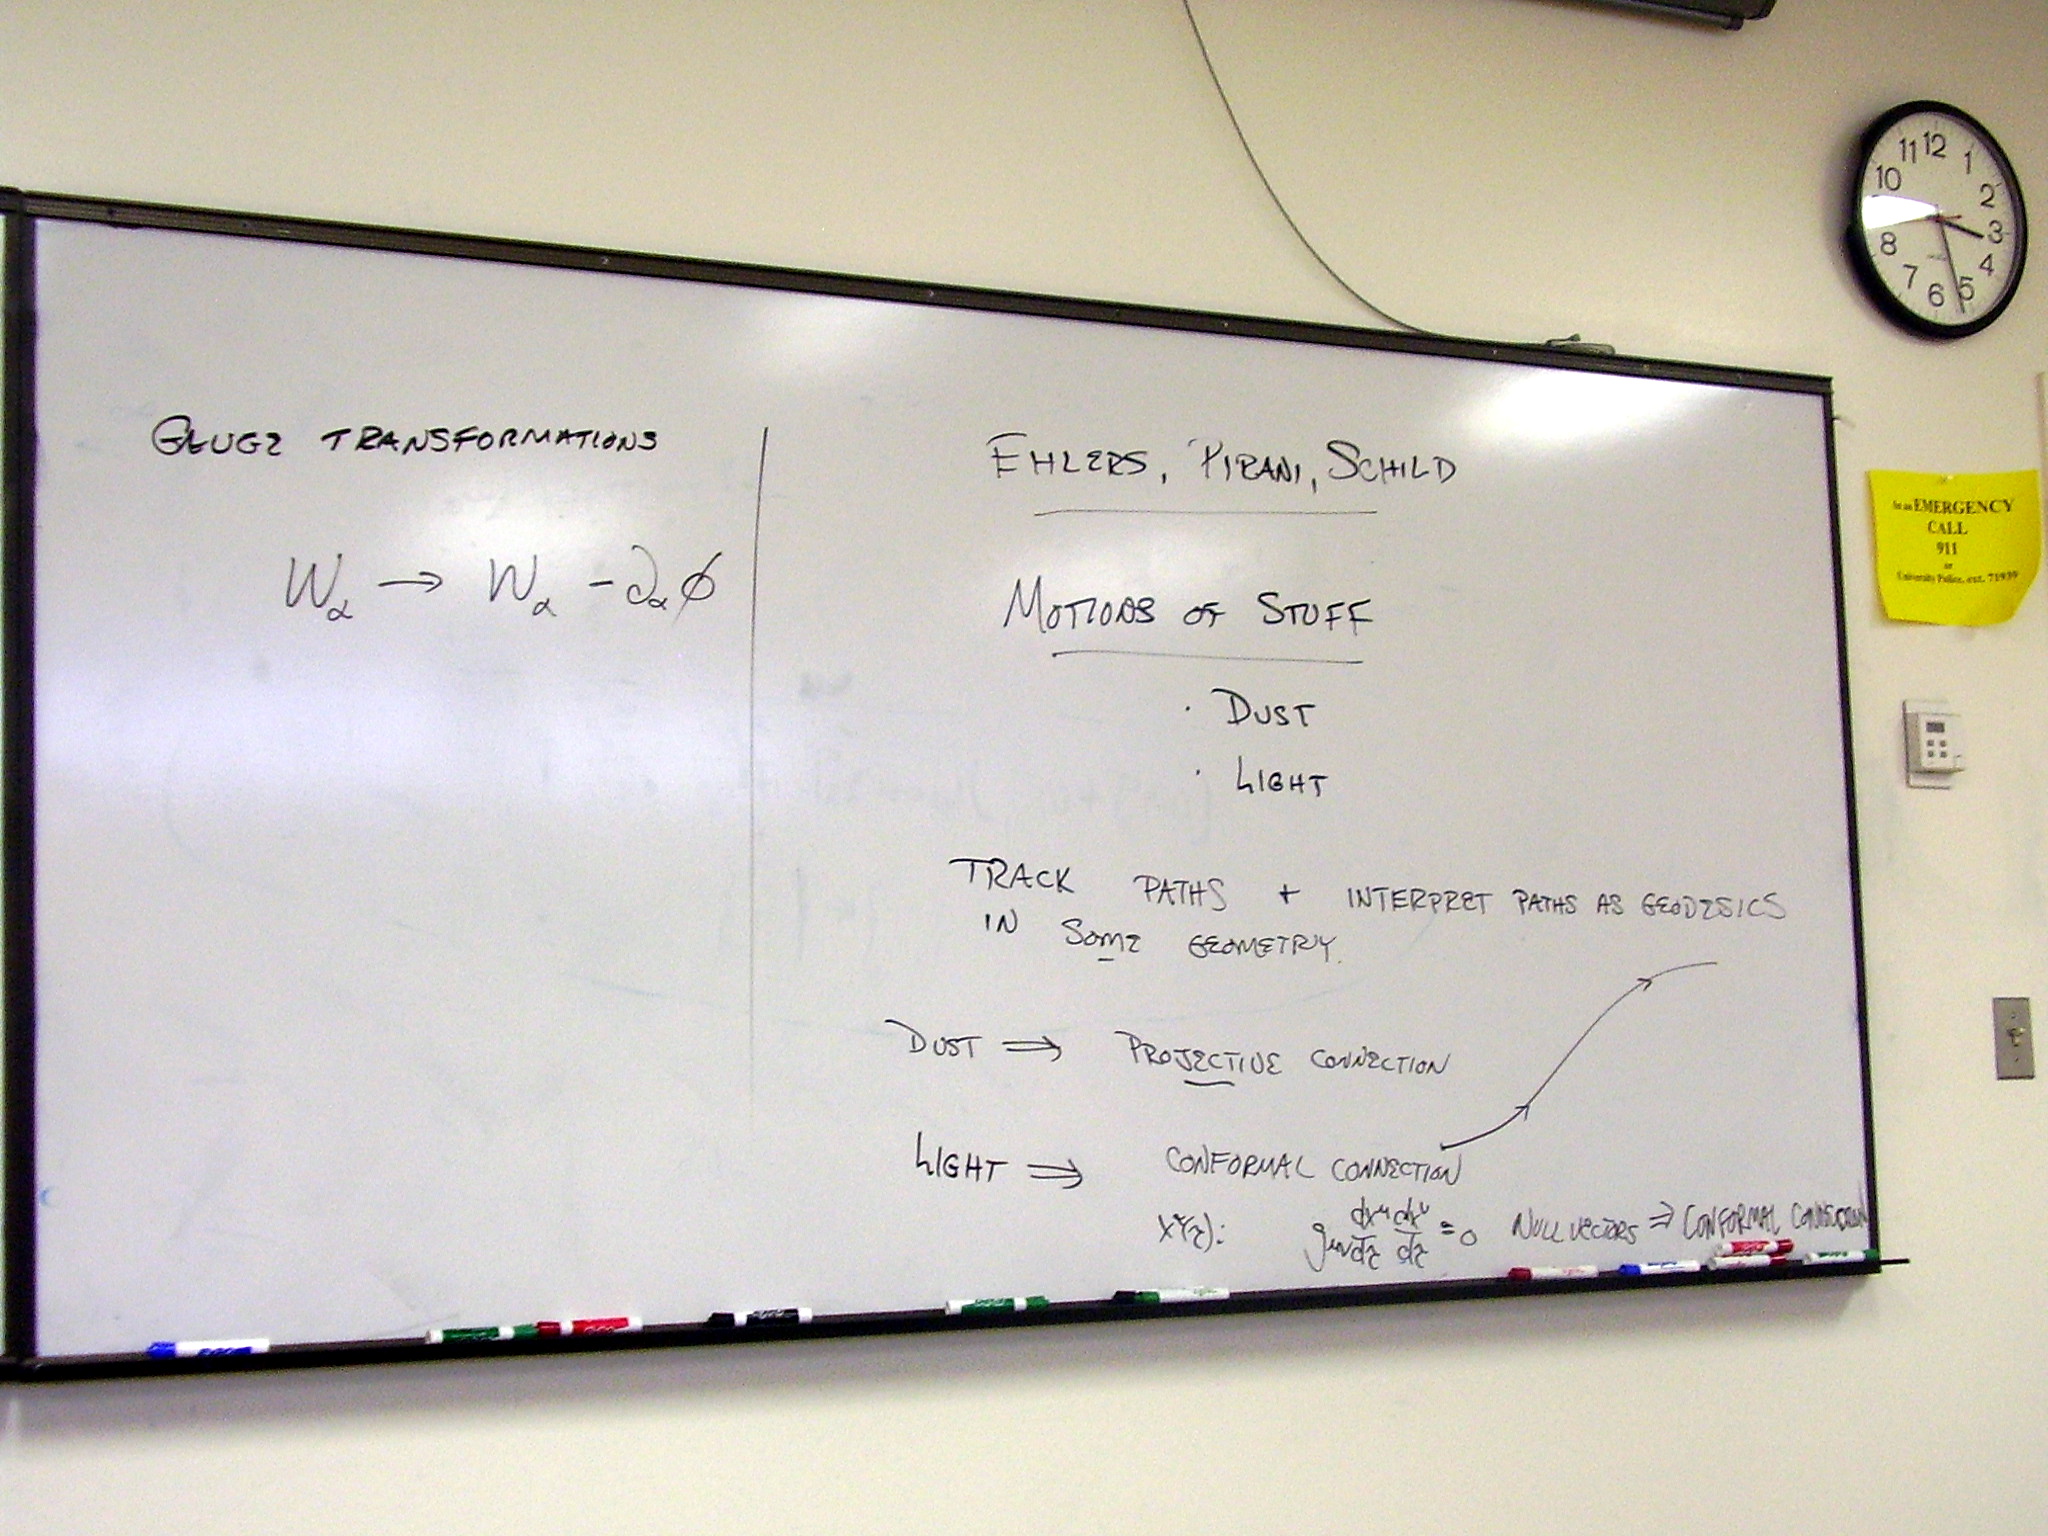 GAUGE TRANSFORMATIONS
W_α → W_α - ∂_α φ
EHLERS, PIRANI, SCHILD
MOTIONS OF STUFF
· DUST
· LIGHT
TRACK PATHS + INTERPRET PATHS AS GEODESICS
IN SOME GEOMETRY.
DUST ⇒ PROJECTIVE CONNECTION
LIGHT ⇒ CONFORMAL CONNECTION
x^μ(τ): g_μν dx^μ/dτ dx^ν/dτ = 0 NULL VECTORS ⇒ CONFORMAL CONNECTION
11 12 1
10 2
8 3
7 6 5 4
In an EMERGENCY
CALL
911
or
University Police, ext. 71939